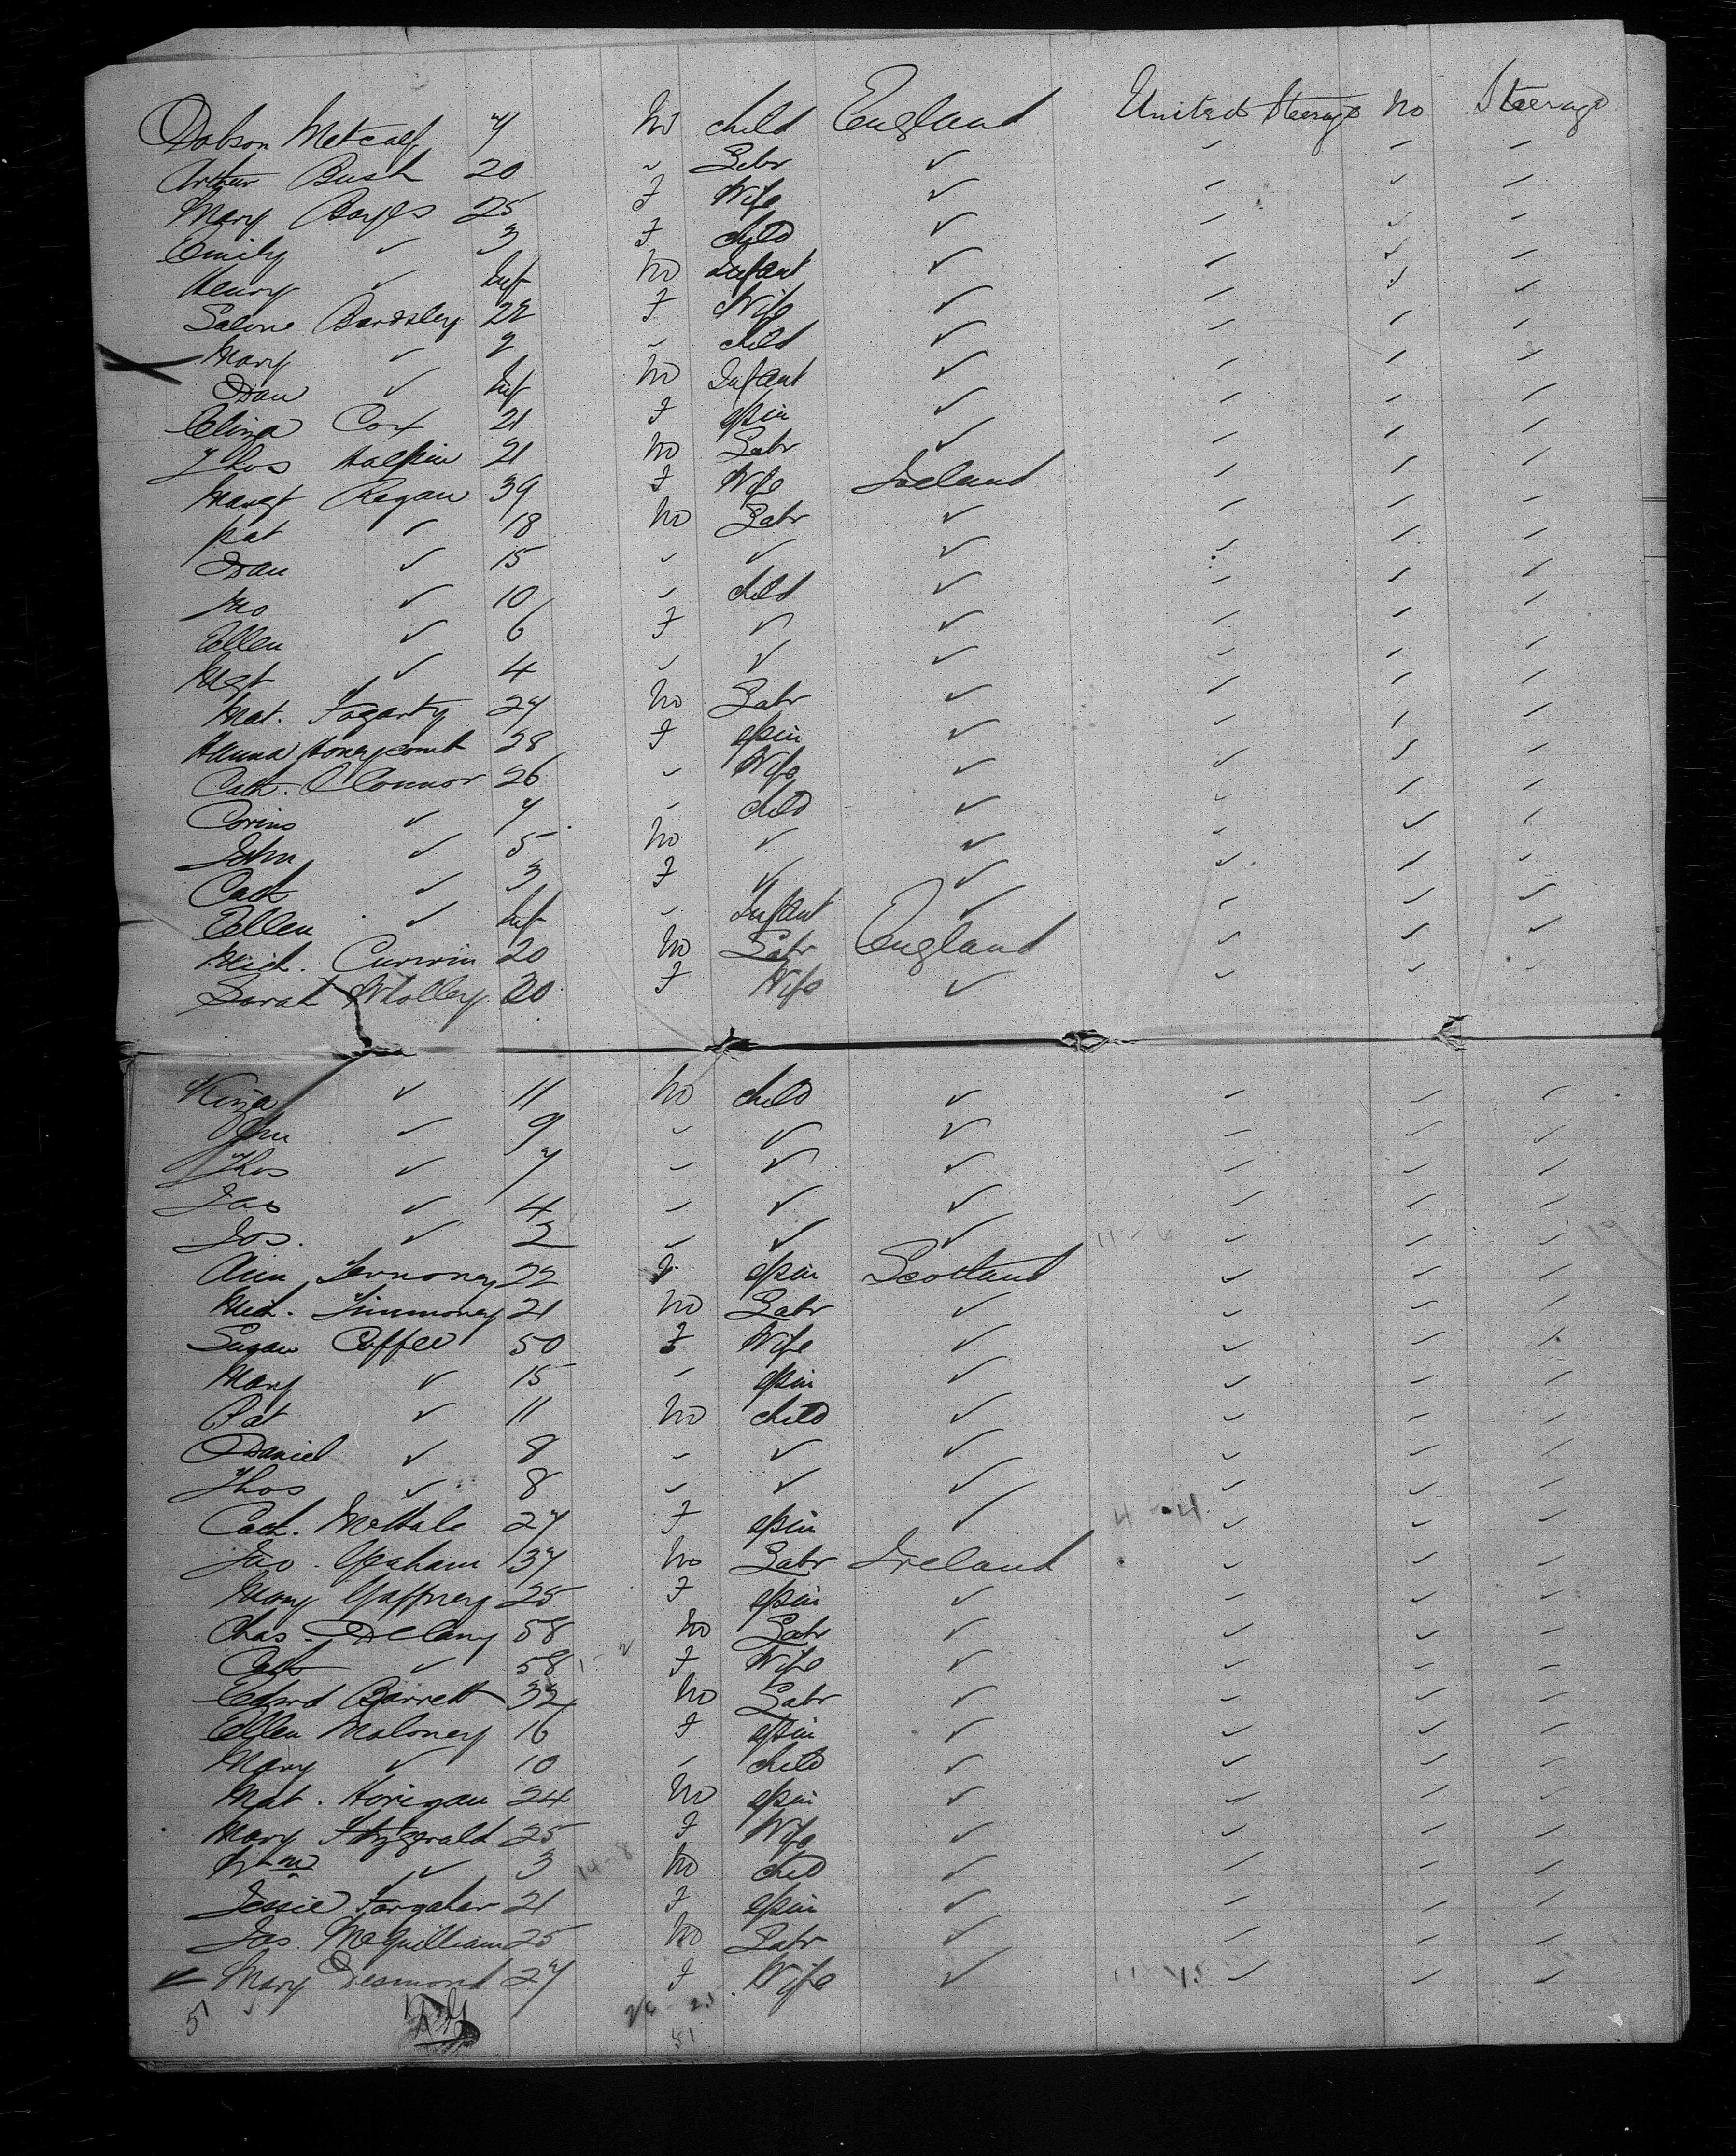 Dobson Metcalf 7 M child England United Steerage No Steerage
Arthur Bush 20 " Labr ✓
Mary Bayes 25 F Wife ✓
Emily ✓ 3 F child ✓
Henry ✓ Inf M Infant ✓
Bardsley 22 F Wife ✓
Mary ✓ 2 " child ✓
Dan ✓ Inf M Infant ✓
Eliza Cox 21 F Spin ✓
Thos Halpin 21 M Labr ✓
Margt Regan 39 F Wife Ireland
Pat ✓ 18 M Labr ✓
Dan ✓ 15 " ✓ ✓
Jno ✓ 10 " child ✓
Ellen ✓ 6 F ✓ ✓
Mgt ✓ 4 " ✓ ✓
Mat. Fogarty 27 M Labr ✓
Hanna Honeycomb 28 F Spin ✓
Cath. O'Connor 26 " Wife ✓
✓ 7 " child ✓
John ✓ 5 M ✓ ✓
Cath ✓ 3 F ✓ ✓
Ellen ✓ Inf " Infant ✓
Mich. Curwin 20 M Labr England
Sarah Wholley 30 F Wife ✓
✓ 11 M child ✓
John ✓ 9 " ✓ ✓
Thos ✓ 7 " ✓ ✓
Jas ✓ 4 " ✓ ✓
Jos. ✓ 2 " ✓ ✓ 11-6
Ann 22 F Spin Scotland
Mich. Timmoney 21 M Labr ✓
Susan Coffee 50 F Wife ✓
Mary ✓ 15 " Spin ✓
Pat ✓ 11 M child ✓
Daniel ✓ 9 " ✓ ✓
Thos ✓ 8 " ✓ ✓
Cath. McHale 27 F Spin ✓ 4-4
Jno. Graham 37 M Labr Ireland
Mary Gaffney 25 F Spin ✓
Chas. Delany 58 M Labr ✓
Cath ✓ 58 F Wife ✓
Edwd Barrett 32 M Labr ✓
Ellen Maloney 16 F Spin ✓
Mary ✓ 10 " child ✓
Mat. Horigan 24 M Spin ✓
Mary Fitzgerald 25 F Wife ✓
Wm ✓ 3 14-8 M child ✓
Jessie Fargaher 21 F Spin ✓
Jas. McQuilliam 25 M Labr ✓
Mary Desmond 27 F Wife ✓ 11-15
51 26-25
51